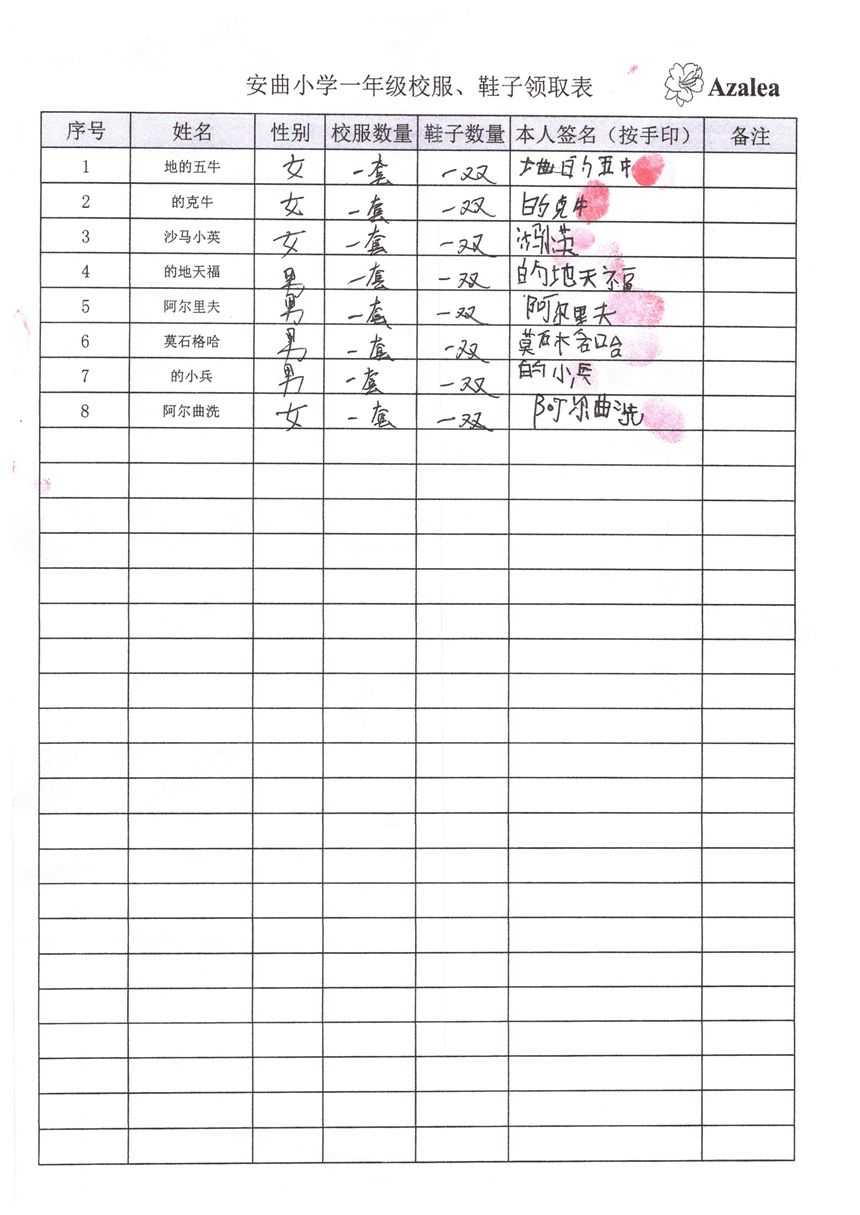 安曲小学一年级校服、鞋子领取表 Azalea
序号 姓名 性别 校服数量 鞋子数量 本人签名（按手印） 备注
1 地的五牛 女 一套 一双 地的五牛
2 的克牛 女 一套 一双 的克牛
3 沙马小英 女 一套 一双 沙马小英
4 的地天福 男 一套 一双 的地天福
5 阿尔里夫 男 一套 一双 阿尔里夫
6 莫石格哈 男 一套 一双 莫石格哈
7 的小兵 男 一套 一双 的小兵
8 阿尔曲洗 女 一套 一双 阿尔曲洗